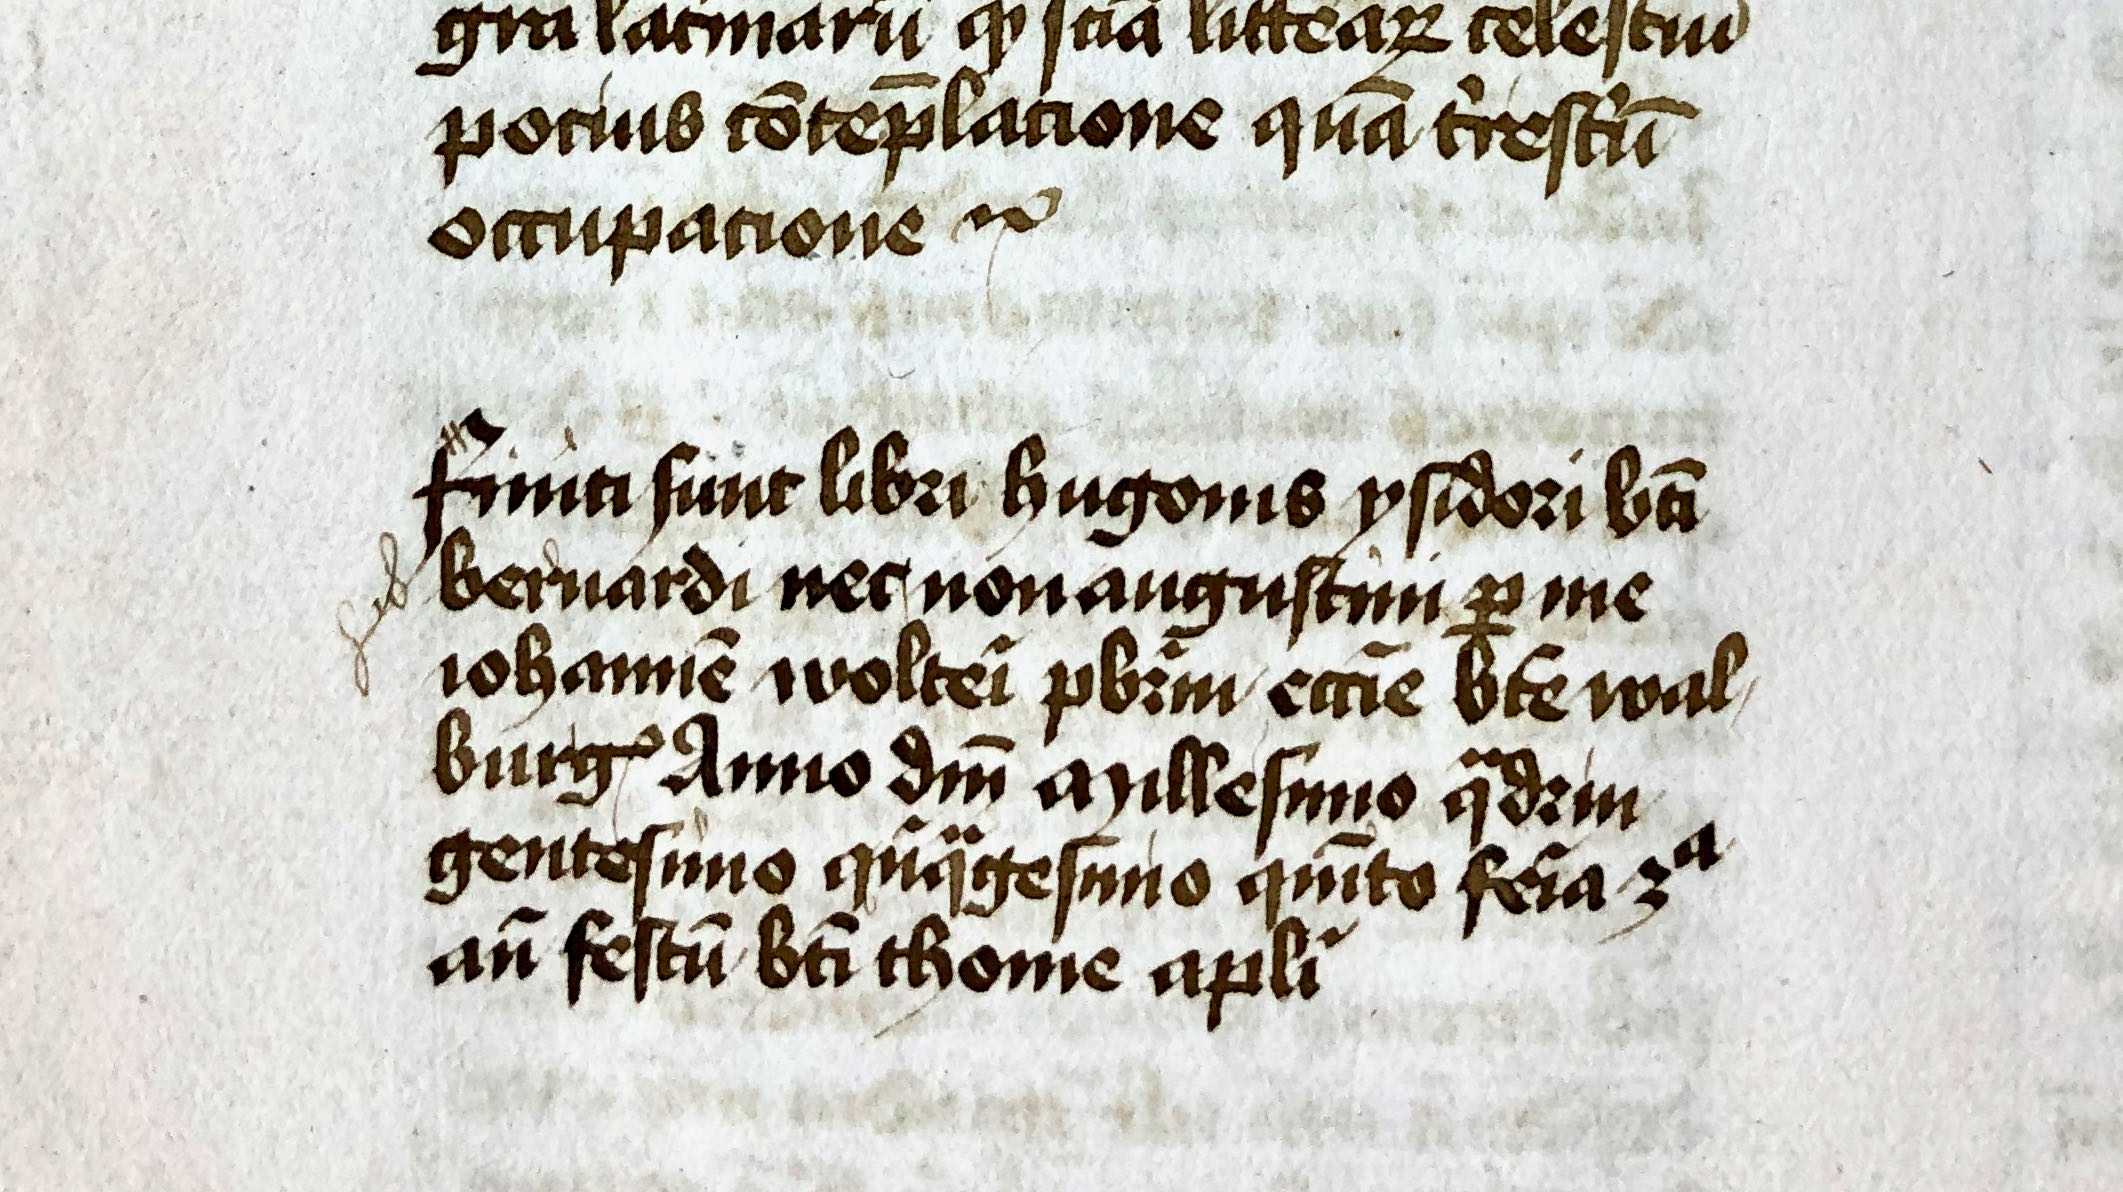 gr̃a lacrimarũ qͥ sciã littearꝝ celestiũ
pocius cõtep̄lacione quã t'restriũ
occupacione ⁊c̃
Finiti sunt libri hugonis ysidori bt̃i
bernardi nec non augustini ꝑ me
iohannẽ wolteri pbr̃m eccĩe bt̃e wal
burg̃ Anno dñi Millesimo qᵃdrin
gentesimo qũqᵃgesimo quĩto fer̃ia 3ᵃ
añ festũ bt̃i thome apl̃i